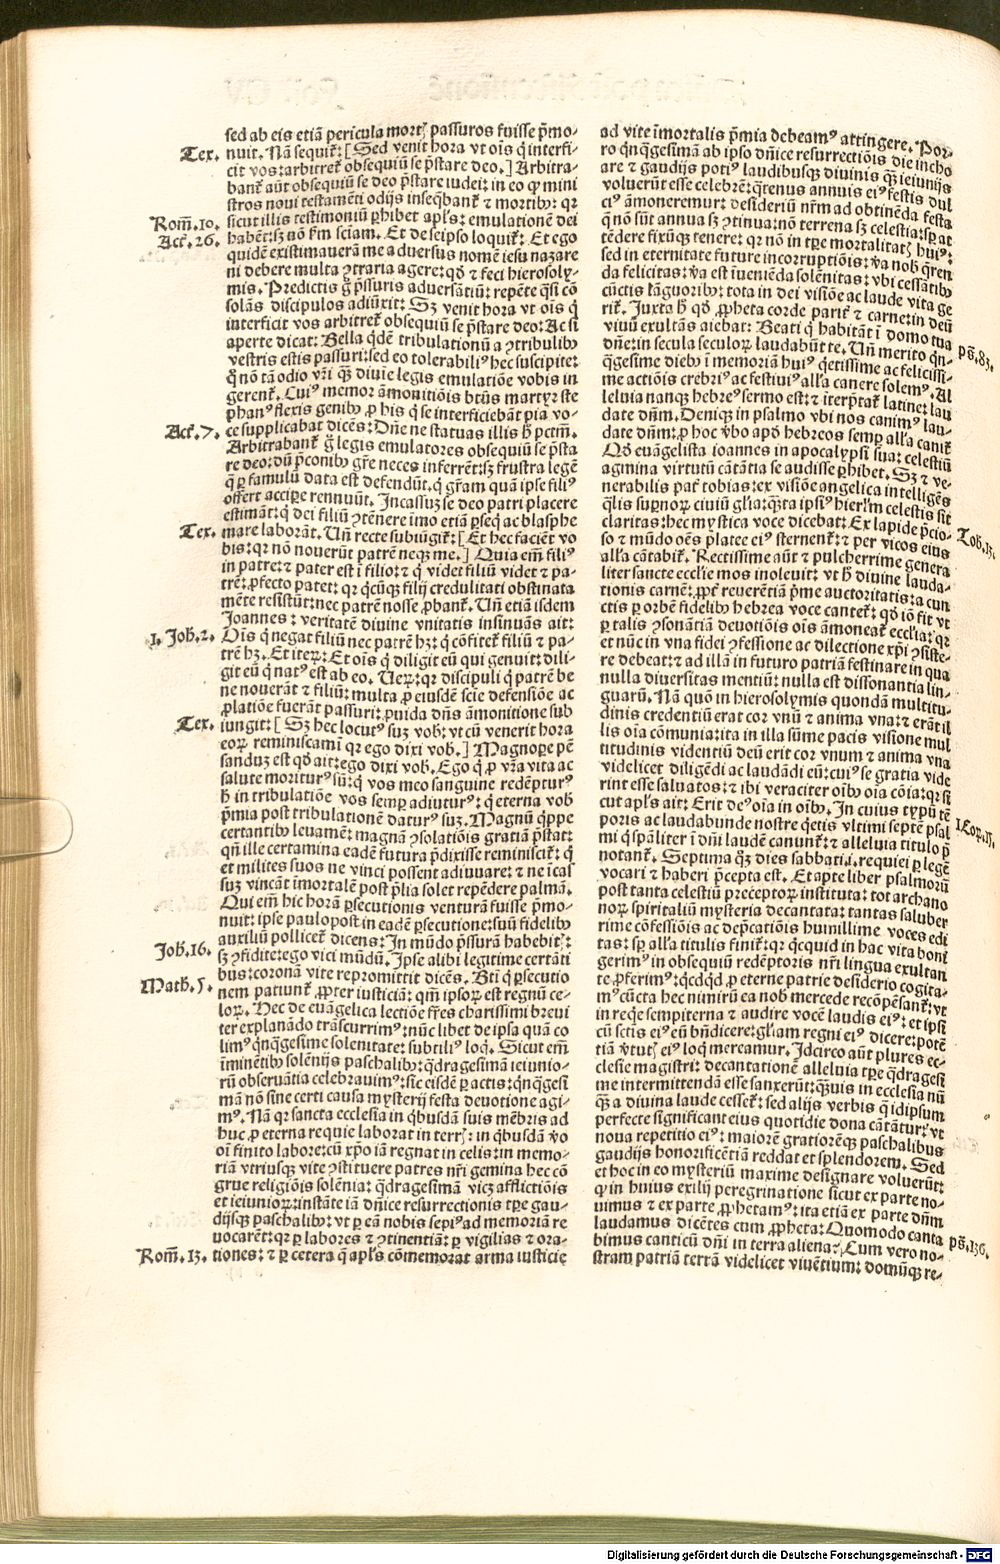 sed ab eis etiã pericula mortꝭ passuros fuisse p̄mo-
Tex. nuit. Nã sequit᷑: [Sed venit hora vt oĩs q̇ interfi-
cit vos: arbitret᷑ obsequiũ se p̄stare deo.] Arbitra-
bant᷑ aũt obsequiũ se deo p̄stare iudei: in eo ꝙ mini
stros noui testamẽti odijs inseq̃bant᷑ ⁊ mortibꝰ: qꝛ
Rom̃. 10. sicut illis testimoniũ ꝑhibet apl's: emulationẽ dei
Act᷑. 26. habẽt: sꝫ nõ ẜm sciam. Et de seipso loquit᷑: Et ego
quidẽ existimauerã me aduersus nomẽ iesu nazare
ni debere multa ꝯtraria agere: qḋ ⁊ feci hierosoly-
mis. Predictis g̊ p̄ssuris aduersãtiũ: repẽte q̃si cõ
solãs discipulos adiũxit: Sꝫ venit hora vt oĩs q̇
interficit vos arbitret᷑ obsequiũ se p̄stare deo: Ac si
aperte dicat: Bella q̇dẽ tribulationũ a ꝯtribulibꝰ
vestris estis passuri: sed eo tolerabiliꝰ hec suscipite:
q̇ nõ tã odio vr̃i q̃ꝫ diuie legis emulatiõe vobis in
gerent᷑. Cuiꝰ memor ãmonitiõis btũs martyr ste
phanꝰ flexis genibꝰ ꝓ his q̇ se interficiebãt pia vo-
Act᷑. 7. ce supplicabat dicẽs: Dñe ne statuas illis h̊ pctm̃.
Arbitrabant᷑ g̊ legis emulatores obsequiũ se p̄sta
re deo: dũ p̄conibꝰ gr̃e neces inferrẽt: sꝫ frustra legẽ
q̃ ꝑ famulũ data est defendũt, q̇ gr̃am quã ipse filiꝰ
offert accipe rennuũt. Incassuꝫ se deo patri placere
estimãt: q̇ dei filiũ ꝯtẽnere imo etiã ꝑseq̇ ac blasphe
Tex. mare laborãt. Uñ recte subiũgit᷑: [Et hec faciẽt vo
bis: qꝛ nõ nouerũt patrẽ neqꝫ me.] Quia em̃ filiꝰ
in patre: ⁊ pater est ĩ filio: ⁊ q̇ videt filiũ videt ⁊ pa-
trẽ: ꝓfecto patet: qꝛ q̇cũqꝫ filij credulitati obstinata
mẽte resistũt: nec patrẽ nosse ꝓbant᷑. Uñ etiã isdem
Joannes: veritatẽ diuine vnitatis insinuãs ait:
1. Joh̃. 2. Oĩs q̇ negat filiũ nec patrẽ hꝫ: q̇ cõfitet᷑ filiũ ⁊ pa-
trẽ hꝫ. Et iteꝝ: Et oĩs q̇ diligit eũ qui genuit: dili-
git eũ q̇ natꝰ est ab eo. Ueꝝ: qꝛ discipuli q̇ patrẽ be
ne nouerãt ⁊ filiũ: multa ꝓ eiusdẽ fcie defensiõe ac
ꝓlatiõe fuerãt passuri: ꝓuida dñs ãmonitione sub
Tex. iungit: [Sꝫ hec locutꝰ suꝫ vob̃: vt cũ venerit hora
eoꝝ reminiscamĩ qꝛ ego dixi vob̃.] Magnope pẽ
sanduꝫ est qḋ ait: ego dixi vob̃. Ego q̇ ꝓ vr̃a vita ac
salute moriturꝰ sũ: q̇ vos meo sanguine redẽpturꝰ
h̊ in tribulatiõe vos semꝑ adiuturꝰ: q̇ eterna vob̃
p̄mia post tribulationẽ daturꝰ suꝫ. Magnũ q̇ppe
certantibꝰ leuamẽ: magnã ꝯsolatiõis gratiã p̄stat:
qñ ille certamina eadẽ futura p̄dixisse reminiscit᷑: q̇
et milites suos ne vinci possent adiuuare: ⁊ ne icas
suꝫ vincãt ĩmortalẽ post p̄lia solet repẽdere palmã.
Qui em̃ hic horã ꝑsecutionis venturã fuisse p̄mo-
nuit: ipse paulopost in eadẽ ꝑsecutione: suũ fidelibꝰ
auxiliũ pollicet᷑ dicens: In mũdo p̄ssurã habebitꝭ:
Joh̃. 16. sꝫ ꝯfidite: ego vici mũdũ. Ipse alibi legitime certãti
bus: coronã vite repromittit dicẽs. Bt̃i q̇ ꝑsecutio
Math̃. 5. nem patiunt᷑ ꝓpter iusticiã: qm̃ ipsoꝝ est regnũ ce-
loꝝ. Hec de euãgelica lectiõe fr̃es charissimi breui
ter explanãdo trãscurrimꝰ: nũc libet de ipsa quã co
limꝰ q̇nq̃gesime solenitate: subtiliꝰ loq̇. Sicut em̃
ĩminẽtibꝰ solẽnijs paschalibꝰ: q̃dragesimã ieiunio-
rũ obseruãtia celebrauimꝰ: sic eisdẽ ꝑactis: q̇nq̃gesi
mã nõ sine certi causa mysterij festa deuotione agi-
mꝰ. Nã qꝛ sancta ecclesia in q̇busdã suis mẽbris ad
huc ꝓ eterna requie laborat in terrꝭ: in q̇busdã v̊o
oĩ finito labore: cũ xp̃o iã regnat in celis: in memo-
riã vtriusqꝫ vite ꝯstituere patres nr̃i gemina hec cõ
grue religiõis solẽnia: q̃dragesimã vicꝫ afflictiõis
et ieiunioꝝ: instãte iã dñice resurrectionis tpe gau-
dijsqꝫ paschalibꝰ: vt ꝑ eã nobis sepiꝰ ad memoriã re
uocarẽt: qꝛ ꝑ labores ⁊ ꝯtinentiã: ꝑ vigilias ⁊ ora-
Rom̃. 13. tiones: ⁊ ꝑ cetera q̃ apl's cõmemorat arma iusticie
ad vite ĩmortalis p̄mia debeamꝰ attingere. Por-
ro q̇nq̃gesimã ab ipso dñice resurrectiõis die incho
are ⁊ gaudijs potiꝰ laudibusqꝫ diuinis q̃ꝫ ieiunijs
voluerũt esse celebrẽ: q̃tenus annuis eiꝰ festis dul
ciꝰ ãmoneremur: desideriũ nr̃m ad obtinẽda festa
q̃ nõ sũt annua sꝫ ꝯtinua: nõ terrena sꝫ celestia: sꝑ at
tẽdere fixũqꝫ tenere: qꝛ nõ in tpe mortalitatꝭ huiꝰ:
sed in eternitate future incorruptiõis: v̊a nob̃ q̃ren
da felicitas: v̊a est ĩueniẽda solẽnitas: vbi cessãtibꝰ
cũctis lãguoribꝰ: tota in dei visiõe ac laude vita ge
rit᷑. Juxta h̊ qḋ ꝓpheta corde parit᷑ ⁊ carne: in deũ
viuũ exultãs aiebat: Beati q̇ habitãt ĩ domo tua
dñe: in secula seculoꝝ laudabũt te. Uñ merito q̇n- ps̃. 83.
q̃gesime diebꝰ ĩ memoriã huiꝰ q̇etissime ac felicissi-
me actiõis crebriꝰ ac festiuiꝰ all'a canere solemꝰ. Al
leluia nanqꝫ hebreꝰ sermo est: ⁊ iterp̄tat᷑ latine: lau
date dñm. Deniqꝫ in psalmo vbi nos canimꝰ lau-
date dñm: ꝓ hoc v̊bo apḋ hebreos semꝑ all'a canit᷑
Qḋ euãgelista ioannes in apocalypsi sua: celestiũ
agmina virtutũ cãtãtia se audisse ꝑhibet. Sꝫ ⁊ ve-
nerabilis pat᷑ tobias: ex visiõe angelica intelligẽs
q̃lis supnoꝝ ciuiũ gl'ia: q̃ta ipsiꝰ hierl'm celestis sit
claritas: hec mystica voce dicebat: Ex lapide p̄cio- Tob. 13.
so ⁊ mũdo oẽs platee eiꝰ sternent᷑: ⁊ per vicos eius
all'a cãtabit᷑. Rectissime aũt ⁊ pulcherrime genera
liter sancte eccl'ie mos inoleuit: vt h̊ diuine lauda-
tionis carnẽ: ꝓpt᷑ reuerẽtiã p̄me auctoritatis: a cun
ctis ꝑ orbẽ fidelibꝰ hebrea voce cantet᷑: qḋ iõ fit vt
ꝑ talis ꝯsonãtiã deuotiõis oĩs ãmoneat᷑ eccl'ia: qꝛ
et nũc in vna fidei ꝯfessione ac dilectione xp̃i ꝯsiste-
re debeat: ⁊ ad illã in futuro patriã festinare in qua
nulla diuersitas mentiũ: nulla est dissonantia lin-
guarũ. Nã quõ in hierosolymis quondã multitu-
dinis credentiũ erat cor vnũ ⁊ anima vna: ⁊ erãt il
lis oĩa cõmunia: ita in illa sũme pacis visione mul
titudinis videntiũ deũ erit cor vnum ⁊ anima vna
videlicet diligẽdi ac laudãdi eũ: cuiꝰ se gratia vide
rint esse saluatos: ⁊ ibi veraciter oĩbꝰ oĩa cõia: qꝛ si
cut apl's ait: Erit deꝰ oĩa in oĩbꝰ. In cuius typũ tẽ 1. Coꝝ. 15.
poris ac laudabunde nostre q̇etis vltimi septẽ psal
mi q̇ sp̃aliter ĩ dñi laudẽ canunt᷑: ⁊ alleluia titulo p̄
notant᷑. Septima q̃ꝫ dies sabbati. i. requiei ꝑ legẽ
vocari ⁊ haberi p̄cepta est. Et apte liber psalmorũ
post tanta celestiũ preceptoꝝ instituta: tot archano
noꝝ spiritaliũ mysteria decantata: tantas saluber
rime cõfessiõis ac dep̄catiõis humillime voces edi
tas: sꝑ all'a titulis finit᷑: qꝛ q̇cquid in hac vita boni
gerimꝰ in obsequiũ redẽptoris nr̃i lingua exultan
te ꝓferimꝰ: q̇cḋqḋ ꝓ eterne patrie desiderio cogita-
mꝰ: cũcta hec nimirũ ea nob̃ mercede recõpẽsant᷑: vt
in req̇e sempiterna ⁊ audire vocẽ laudis eiꝰ: et ipsi
cũ sctis eiꝰ eũ bñdicere: gl'iam regni eiꝰ dicere: potẽ
tiã v̊tutꝭ eiꝰ loq̇ mereamur. Idcirco aũt plures ec-
clesie magistri: decantationẽ alleluia tpe q̃dragesi
me intermittendã esse sanxerũt: q̃ꝫuis in ecclesia nũ
q̃ꝫ a diuina laude cesset᷑: sed alijs verbis q̇ idipsum
perfecte significant eius quotidie dona cãtãtur: vt
noua repetitio eiꝰ: maiorẽ gratiorẽqꝫ paschalibus
gaudijs honorificẽtiã reddat et splendorem. Sed
et hoc in eo mysteriũ maxime designare voluerũt:
ꝙ in huius exilij peregrinatione sicut ex parte no-
uimus ⁊ ex parte ꝓphetamꝰ: ita etiã ex parte dñm
laudamus dicẽtes cum ꝓpheta: Quomodo canta
bimus canticũ dñi in terra aliena? Cum vero no- ps̃. 136.
stram patriã terrã videlicet viuẽtium: domũqꝫ re-
Digitalisierung gefördert durch die Deutsche Forschungsgemeinschaft - DFG